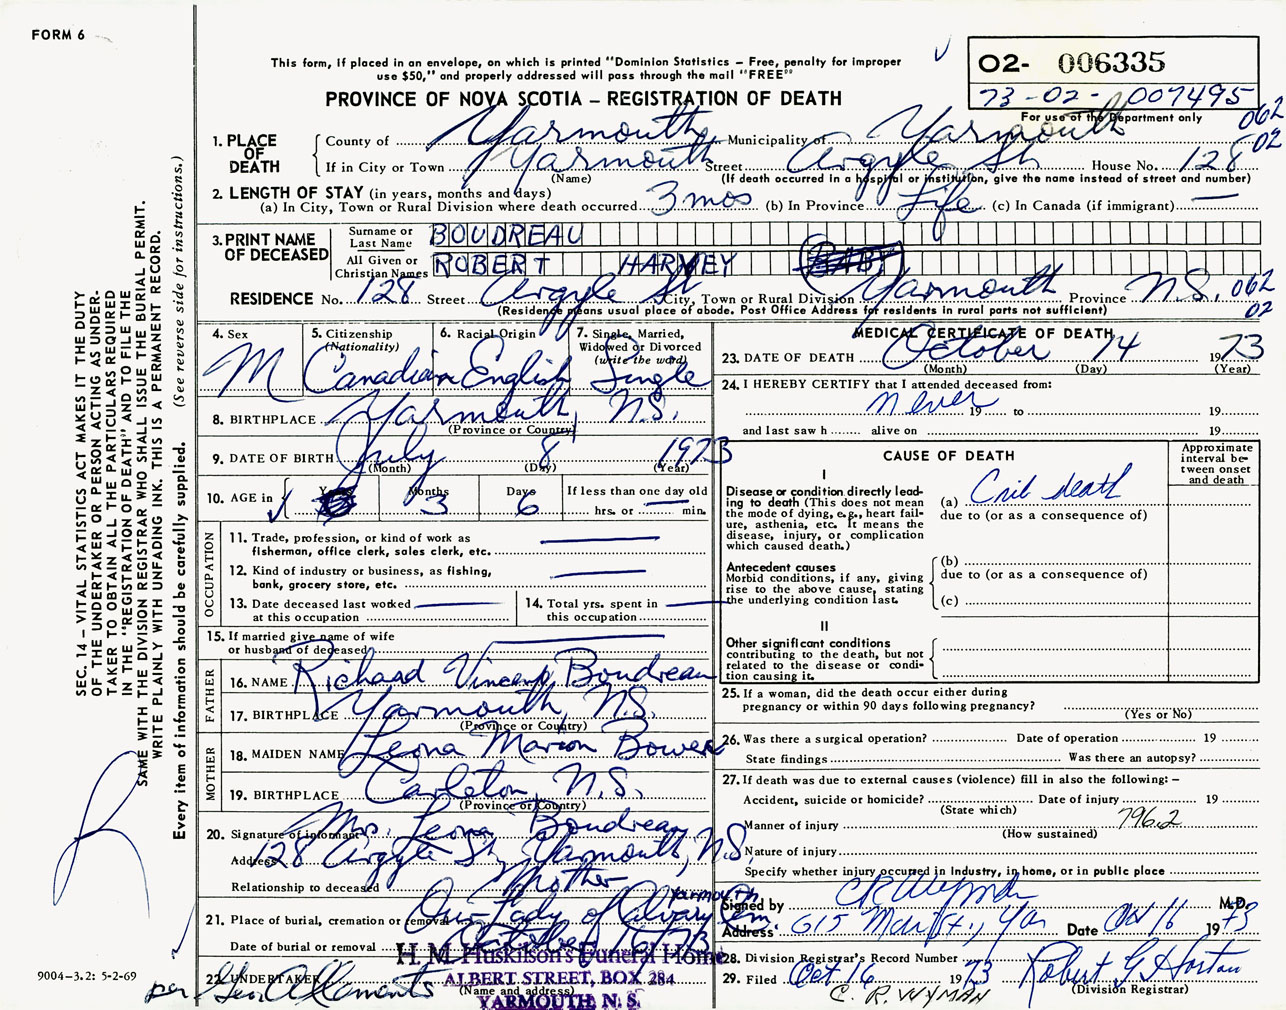 FORM 6
This form, if placed in an envelope, on which is printed "Dominion Statistics – Free, penalty for improper
use $50," and properly addressed will pass through the mail "FREE"
O2- 006335
73-02-007495
For use of the Department only
062
02
PROVINCE OF NOVA SCOTIA – REGISTRATION OF DEATH
1. PLACE OF DEATH
County of Yarmouth Municipality of Yarmouth
If in City or Town Yarmouth Street Argyle St House No. 128
(Name) (If death occurred in a hospital or institution, give the name instead of street and number)
2. LENGTH OF STAY (in years, months and days)
(a) In City, Town or Rural Division where death occurred 3 mos (b) In Province Life (c) In Canada (if immigrant) —
3. PRINT NAME OF DECEASED
Surname or Last Name BOUDREAU
All Given or Christian Names ROBERT HARVEY BABY
RESIDENCE No. 128 Street Argyle St City, Town or Rural Division Yarmouth Province N.S. 062
02
(Residence means usual place of abode. Post Office Address for residents in rural parts not sufficient)
4. Sex M
5. Citizenship (Nationality) Canadian
6. Racial Origin English
7. Single, Married, Widowed or Divorced (write the word) Single
8. BIRTHPLACE Yarmouth, N.S.
(Province or Country)
9. DATE OF BIRTH July 8 1973
(Month) (Day) (Year)
10. AGE in Years Months 3 Days 6 If less than one day old
hrs. or — min.
OCCUPATION
11. Trade, profession, or kind of work as
fisherman, office clerk, sales clerk, etc. —
12. Kind of industry or business, as fishing,
bank, grocery store, etc. —
13. Date deceased last worked —
at this occupation
14. Total yrs. spent in —
this occupation
15. If married give name of wife
or husband of deceased —
FATHER
16. NAME Richard Vincent Boudreau
17. BIRTHPLACE Yarmouth, N.S.
(Province or Country)
MOTHER
18. MAIDEN NAME Leona Marion Bowers
19. BIRTHPLACE Carleton, N.S.
(Province or Country)
20. Signature of informant Mrs. Leona Boudreau
Address 128 Argyle St, Yarmouth, N.S.
Relationship to deceased Mother
21. Place of burial, cremation or removal Our Lady of Calvary Cem Yarmouth
Date of burial or removal October 1973
22. UNDERTAKER
(Name and address)
H. M. Huskilson's Funeral Home
ALBERT STREET, BOX 284
YARMOUTH, N. S.
per.
MEDICAL CERTIFICATE OF DEATH
23. DATE OF DEATH October 14 1973
(Month) (Day) (Year)
24. I HEREBY CERTIFY that I attended deceased from:
never 19 to 19
and last saw h alive on 19
CAUSE OF DEATH
Approximate interval between onset and death
I
Disease or condition directly leading to death (This does not mean the mode of dying, e.g., heart failure, asthenia, etc. It means the disease, injury, or complication which caused death.)
(a) Crib death
due to (or as a consequence of)
Antecedent causes
Morbid conditions, if any, giving rise to the above cause, stating the underlying condition last.
(b)
due to (or as a consequence of)
(c)
II
Other significant conditions
contributing to the death, but not related to the disease or condition causing it.
25. If a woman, did the death occur either during
pregnancy or within 90 days following pregnancy?
(Yes or No)
26. Was there a surgical operation? Date of operation 19
State findings Was there an autopsy?
27. If death was due to external causes (violence) fill in also the following: –
Accident, suicide or homicide? Date of injury 19
(State which)
796.2
Manner of injury
(How sustained)
Nature of injury
Specify whether injury occurred in Industry, in home, or in public place
Signed by C R Wyman M.D.
Address 615 Main St., Yar Date Oct 16 1973
28. Division Registrar's Record Number
29. Filed Oct 16 1973 Robert G Horton
(Division Registrar)
C. R. WYMAN
SEC. 14 – VITAL STATISTICS ACT MAKES IT THE DUTY
OF THE UNDERTAKER OR PERSON ACTING AS UNDER-
TAKER TO OBTAIN ALL THE PARTICULARS REQUIRED
IN THE "REGISTRATION OF DEATH" AND TO FILE THE
SAME WITH THE DIVISION REGISTRAR WHO SHALL ISSUE THE BURIAL PERMIT.
WRITE PLAINLY WITH UNFADING INK. THIS IS A PERMANENT RECORD.
Every item of information should be carefully supplied. (See reverse side for instructions.)
9004–3.2: 5-2-69